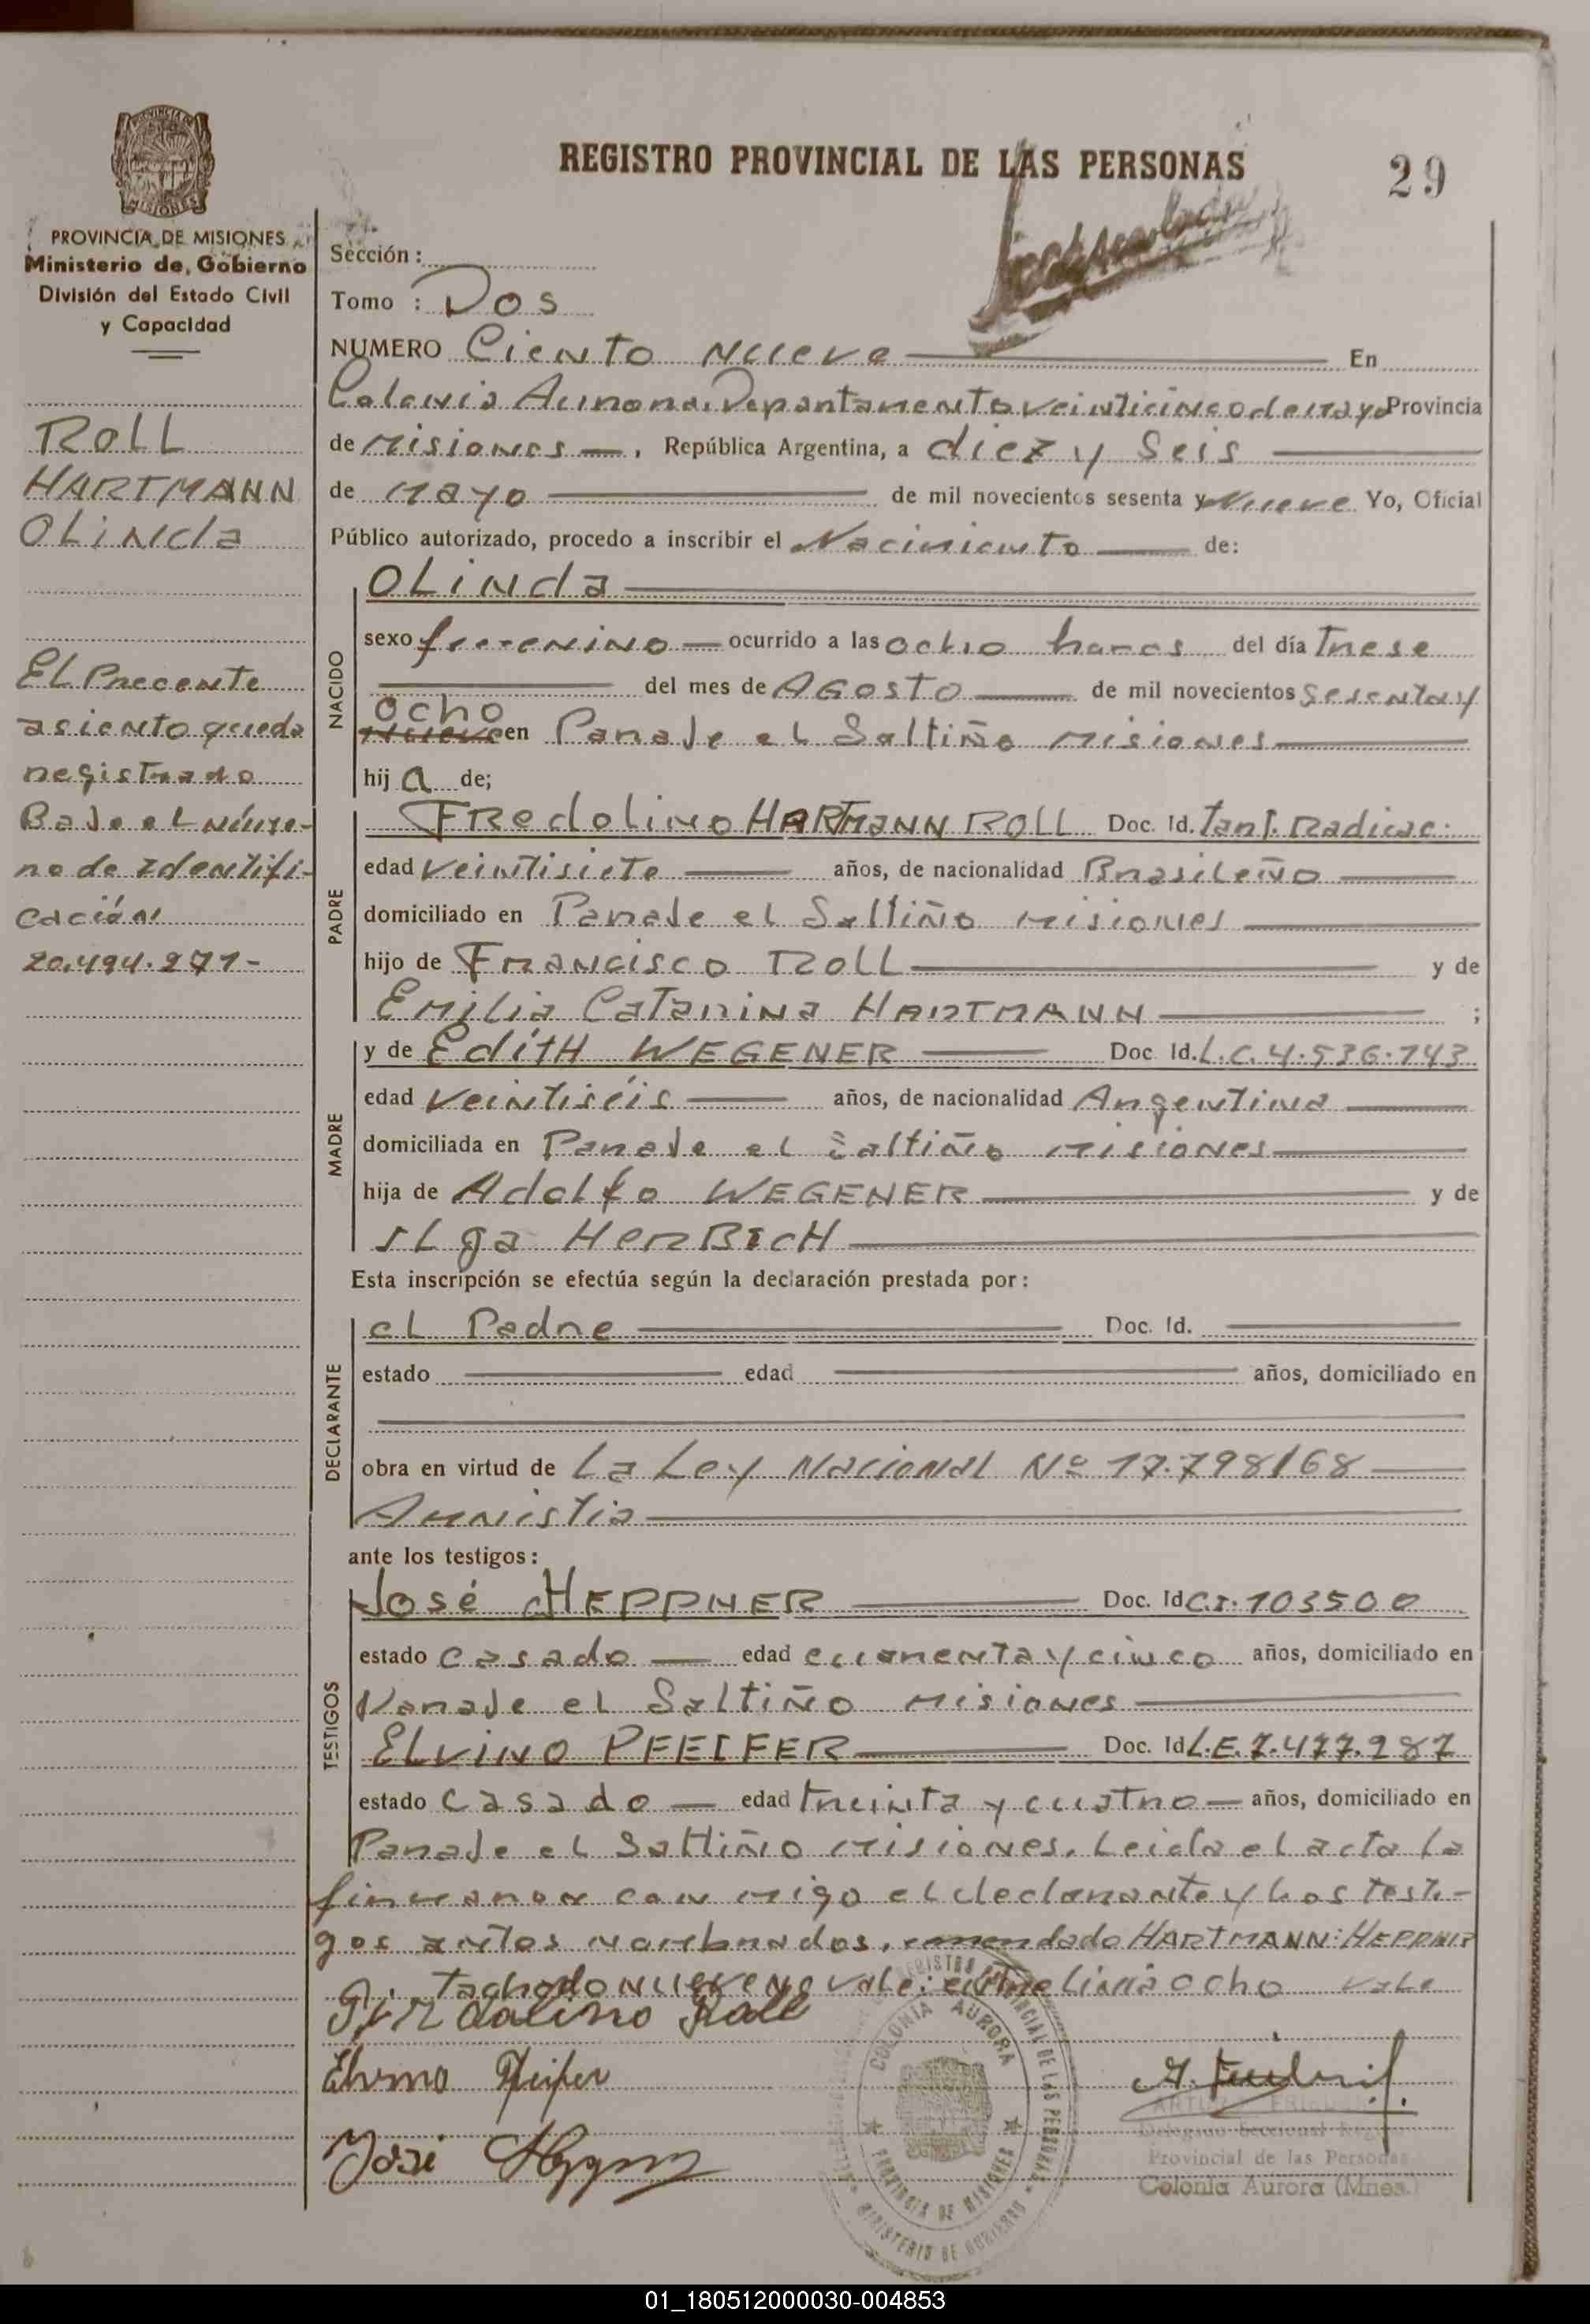 REGISTRO PROVINCIAL DE LAS PERSONAS
29
PROVINCIA DE MISIONES
Ministerio de Gobierno
División del Estado Civil
y Capacidad
ROLL
HARTMANN
OLINda
El Precente
asiento queda
registrado
Bajo el núme-
ro de Identifi-
cación
20.494.271-
Sección :
Tomo : Dos
NUMERO Ciento Nueve En
Colonia Aurora. Departamento veinticinco de mayo Provincia
de Misiones —, República Argentina, a diez y Seis
de Mayo de mil novecientos sesenta y Nueve Yo, Oficial
Público autorizado, procedo a inscribir el Nacimiento de:
NACIDO
OLINda
sexo femenino — ocurrido a las ocho horas del día Trese
del mes de AGOSTO de mil novecientos Sesenta y
ocho
nueve en Paraje el Saltiño Misiones
hij a de;
PADRE
FRedolino HARTMANN ROLL Doc. Id. Tarj. Radicac.
edad Veintisiete años, de nacionalidad Brasileño
domiciliado en Paraje el Saltiño Misiones
hijo de Francisco ROLL y de
Emilia Catarina HARTMANN ;
MADRE
y de Edith WEGENER Doc Id. L.C. 4.536.743
edad Veintiséis años, de nacionalidad Argentina
domiciliada en Paraje el Saltiño Misiones
hija de Adolfo WEGENER y de
ILga HerBICH
Esta inscripción se efectúa según la declaración prestada por:
DECLARANTE
el Padre Doc. Id.
estado edad años, domiciliado en
obra en virtud de La Ley Nacional Nº 17.798/68
Amnistia
ante los testigos:
TESTIGOS
José HEPPNER Doc. Id C.I. 103500
estado Casado — edad cuarenta y cinco años, domiciliado en
Paraje el Saltiño Misiones
ELVINO PFEIFER Doc. Id L.E. 7.477.287
estado Casado — edad treinta y cuatro — años, domiciliado en
Paraje el Saltiño Misiones. Leida el acta la
firmaron con migo el declarante y los testi-
gos antes nombrados. enmendado HARTMANN: HEPPNER
Tachado nueve no vale: entre linia ocho vale
Roll
Elvino Pfeifer
José
COLONIA AURORA
PROVINCIA DE MISIONES
MINISTERIO DE GOBIERNO
Delegado Seccional
Provincial de las Personas
Colonia Aurora (Mnes.)
01_180512000030-004853